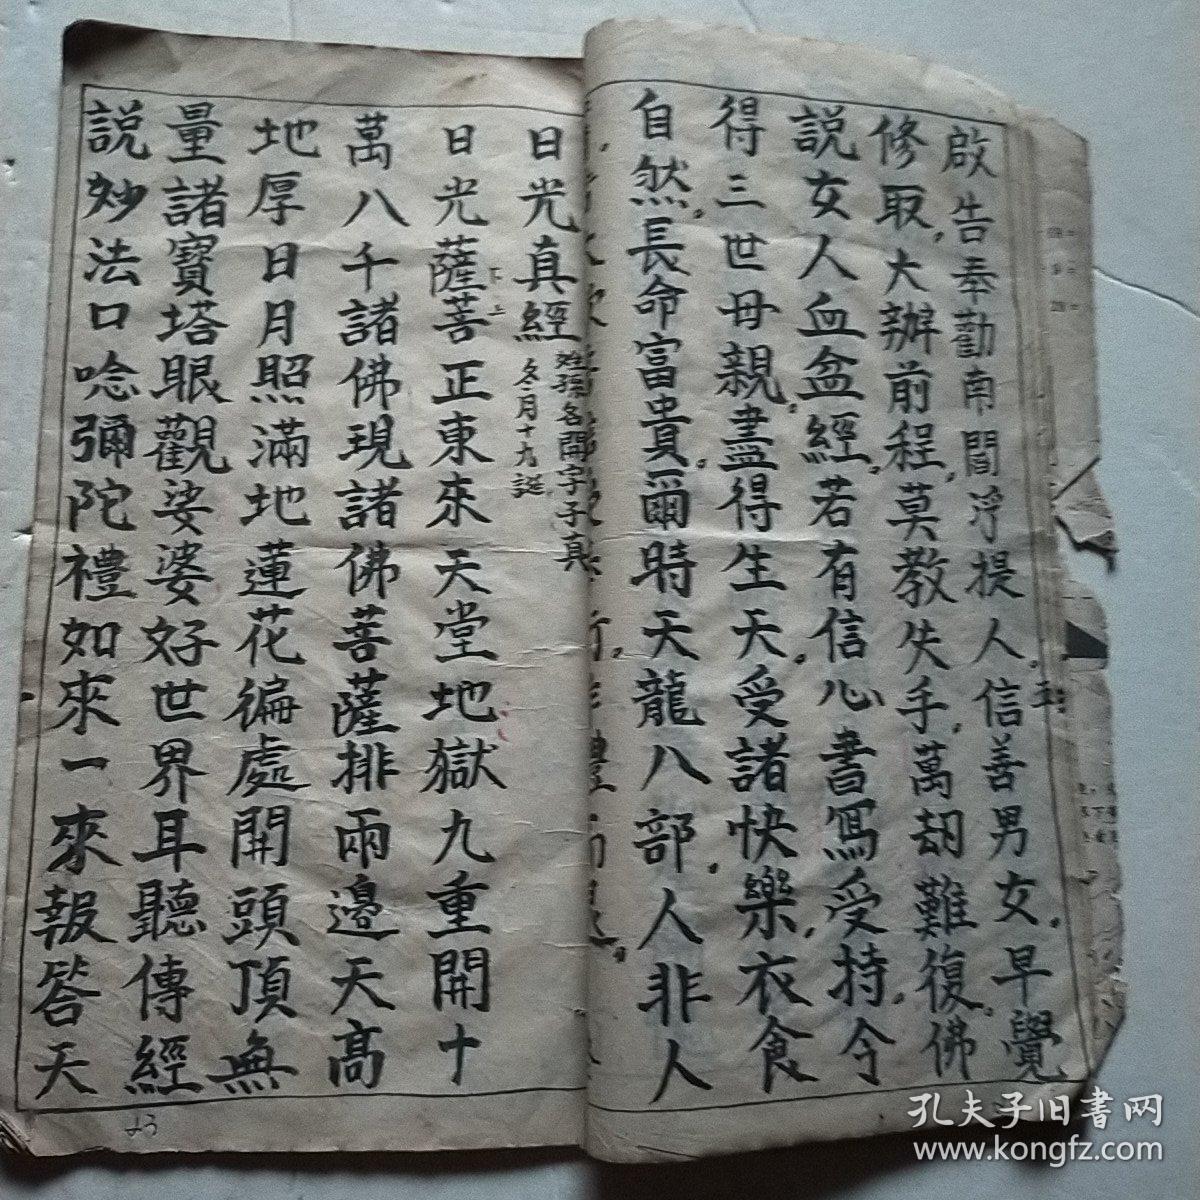 啟告奉勸南閻浮提人信善男女早覺
修取大辦前程莫教失手萬劫難復佛
説女人血盆經若有信心書寫受持令
得三世母親盡得生天受諸快樂衣食
自然長命富貴爾時天龍八部人非人
日光真經
姓孫名開字子真
冬月十九誕
日光薩菩正東來天堂地獄九重開十
下上
萬八千諸佛現諸佛菩薩排兩邊天高
地厚日月照滿地蓮花徧處開頭頂無
量諸寶塔眼觀娑婆好世界耳聽傳經
説妙法口唸彌陀禮如來一來報答天
43
孔夫子旧書网
www.kongfz.com